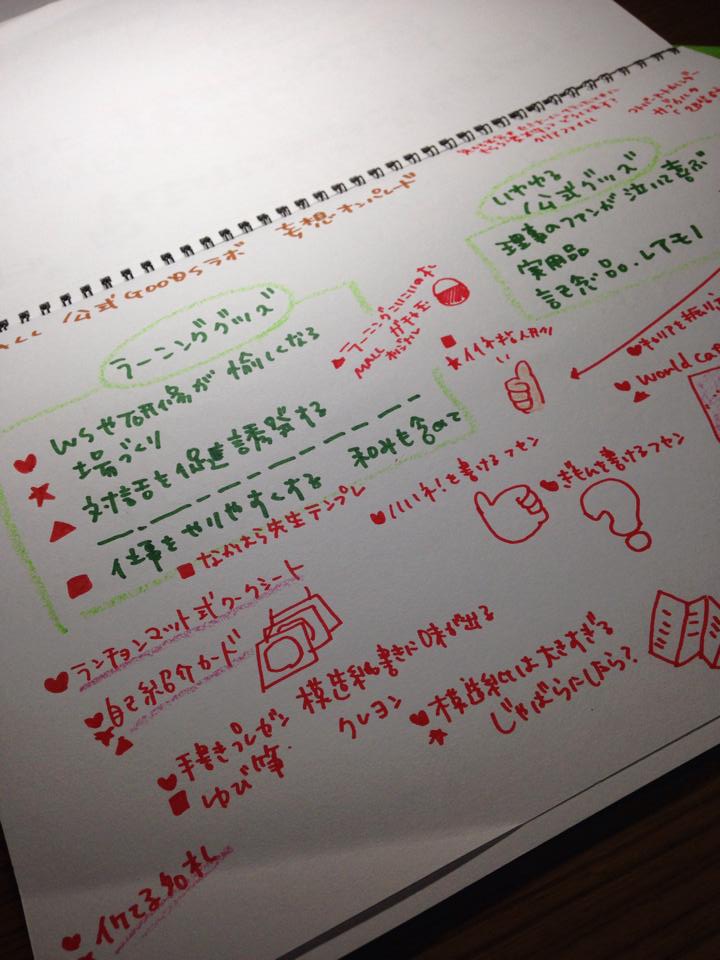 公式GOODSラボ 妄想オンパレード
ラーニンググッズ
WSや研修が愉しくなる
場づくり
対話を促進誘発する
仕事をやりやすくする 和みも含めて
いわゆる
公式グッズ
理事のファンが泣いて喜ぶ
実用品
記念品、してモノ
クリアファイル
ラーニング
ガチャ玉
World Cap
いいネ!を書けるフセン
ぎもんを書けるフセン
なかはら先生テンプレ
ランチョンマット式ワークシート
自己紹介カード
手書きプレゼン 模造紙書きに味が出る
ゆび筆 クレヨン
模造紙は大きすぎる
じゃばらにしたら?
似てる名札